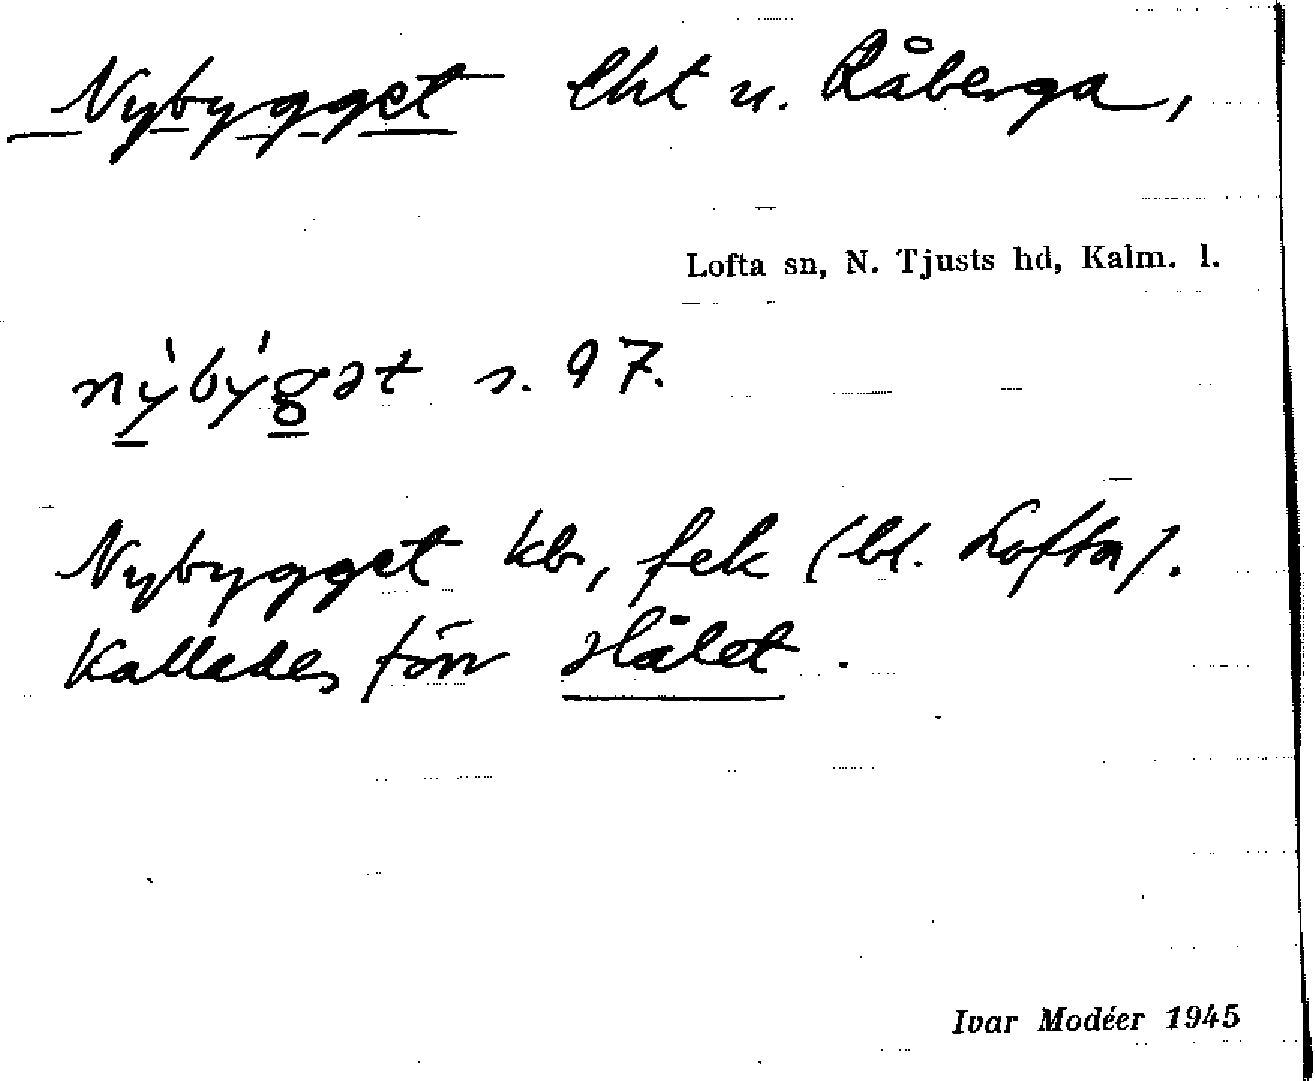 Nybygget lht u. Råberga,
Lofta sn, N. Tjusts hd, Kalm. l.
nýbýgət s. 97.
Nybygget kb, fek (bl. Lofta).
Kallades förr Hålet.
Ivar Modéer 1945